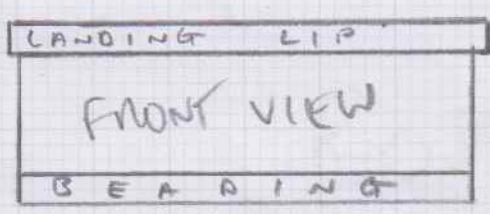 LANDING LIP
FRONT VIEW
BEADING